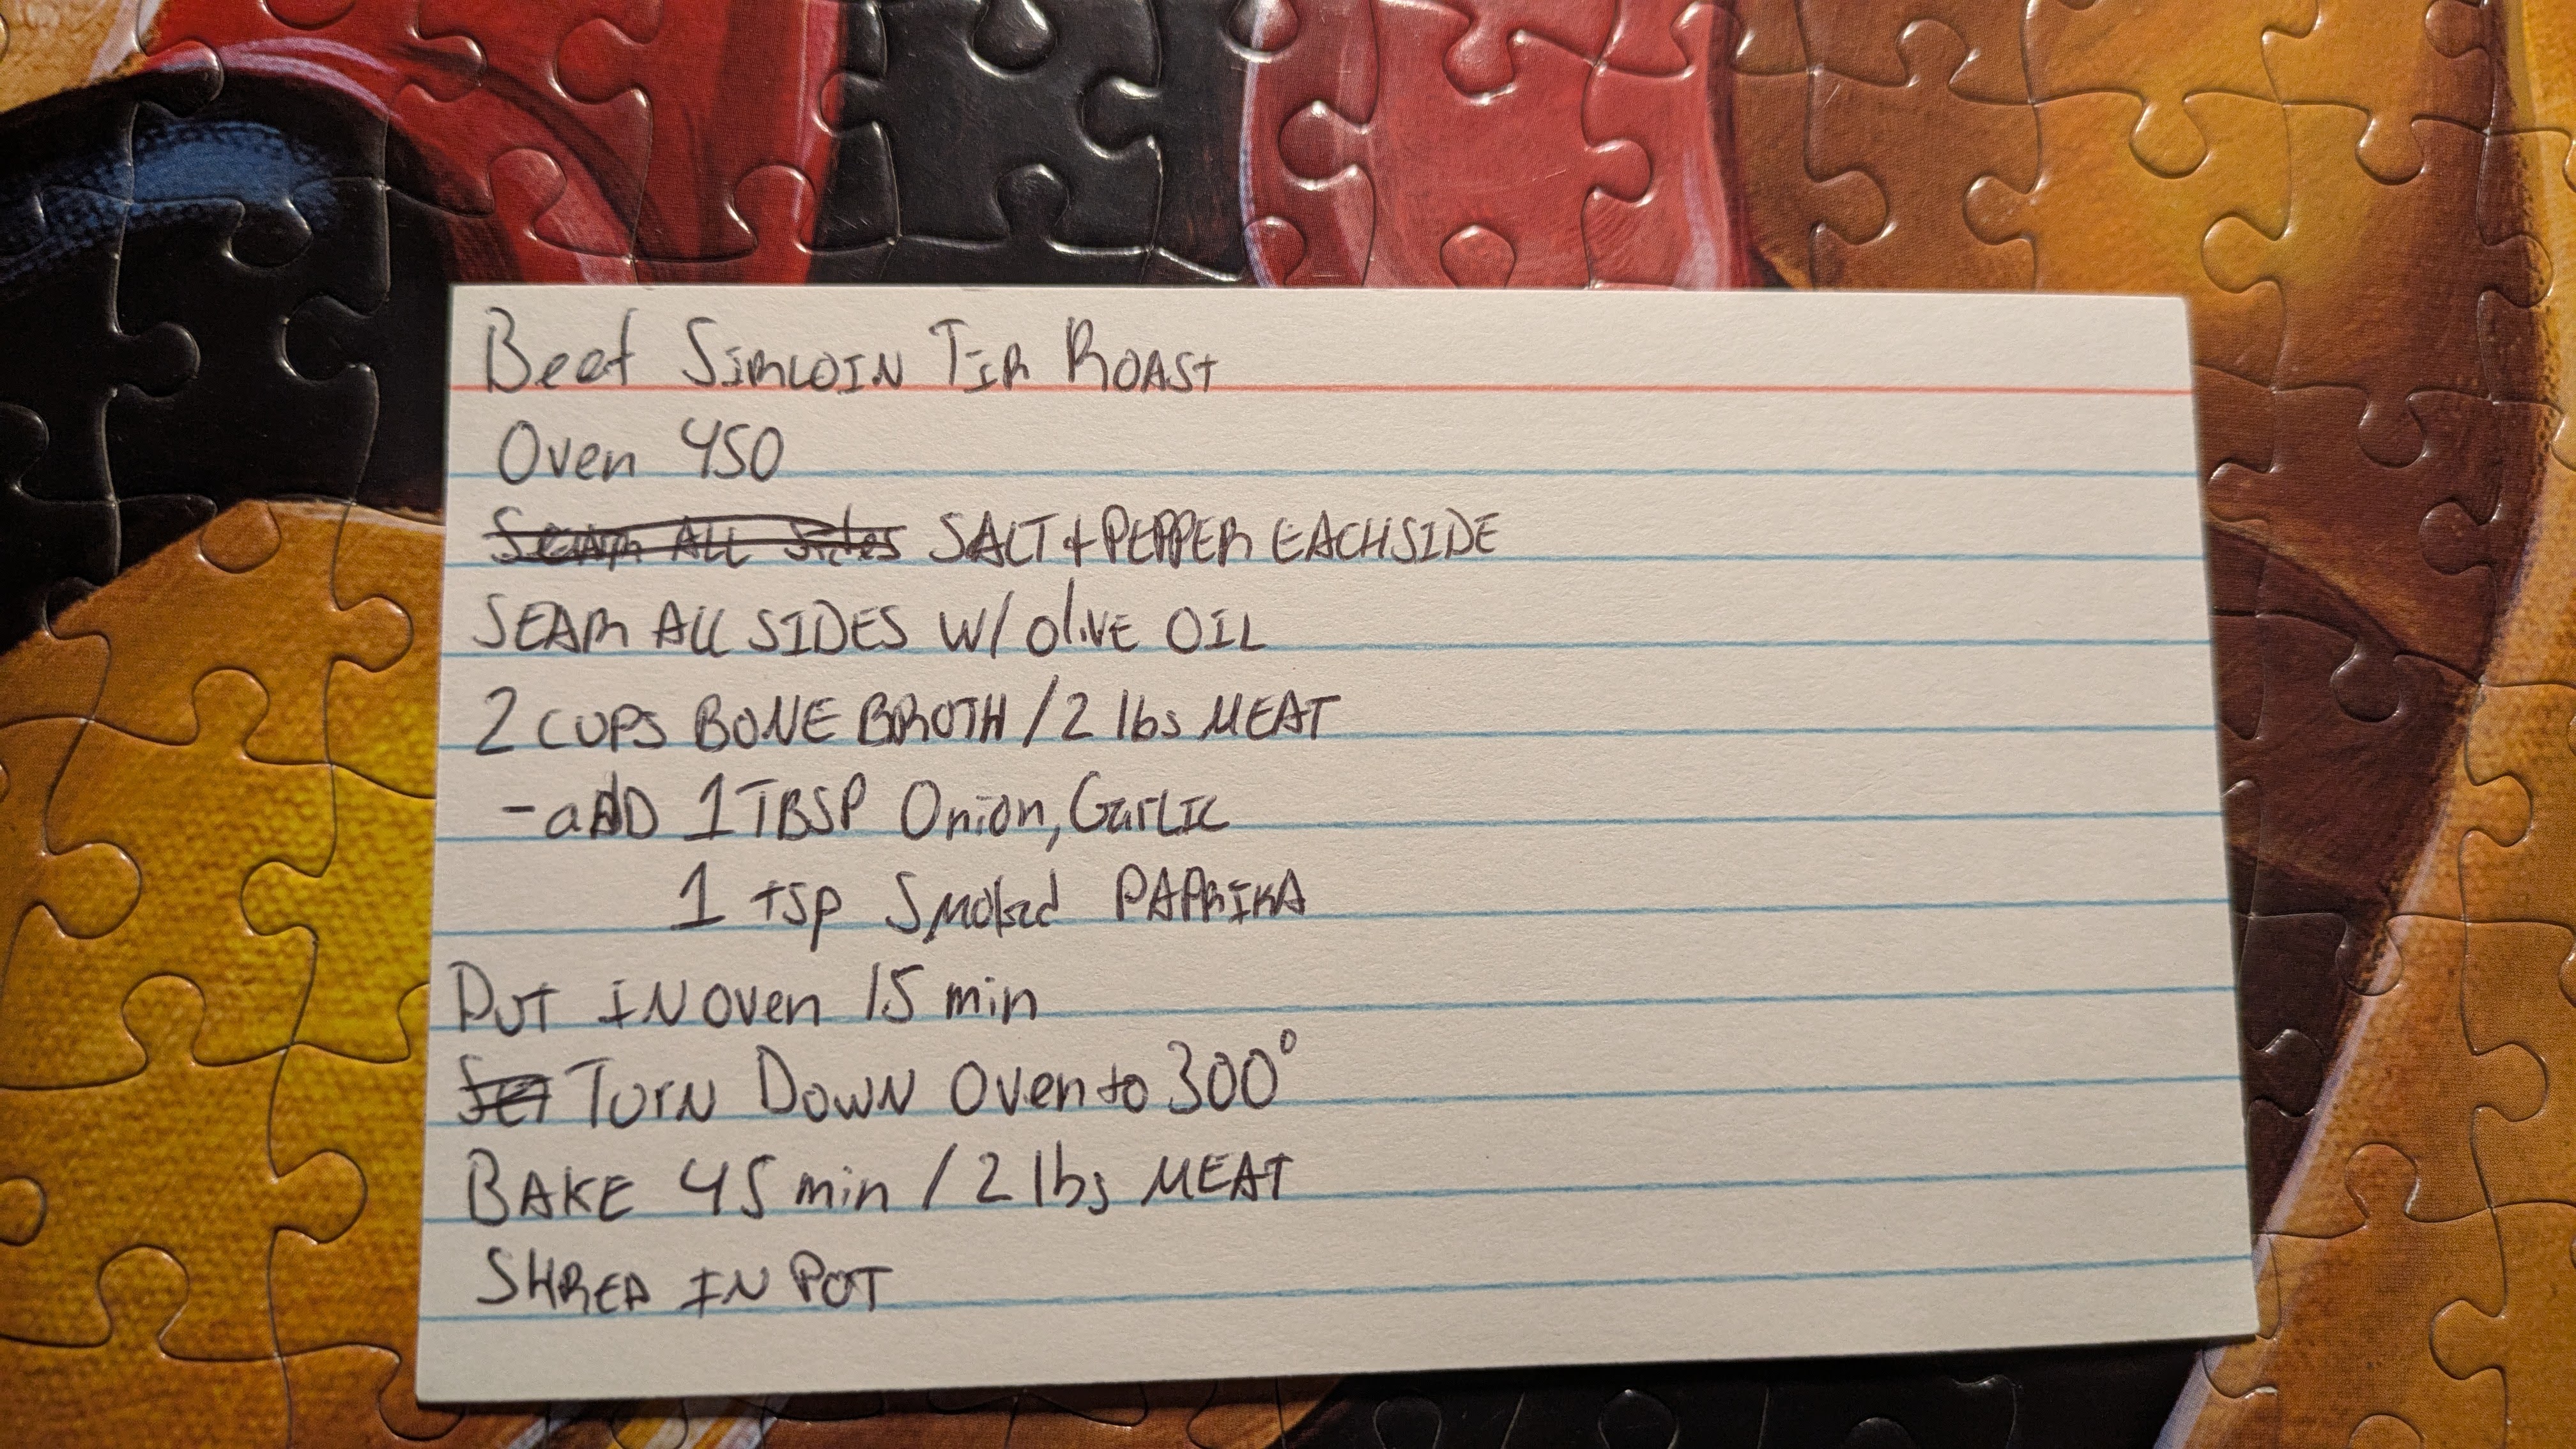 Beef SIRLOIN TIP ROAST
Oven 450
Sear All Sides SALT & PEPPER EACH SIDE
SEAR All SIDES W/ Olive OIL
2 CUPS BONE BROTH / 2 lbs MEAT
- aDD 1 TBSP Onion, GarLIC
1 TSP Smoked PAPRIKA
PUT IN Oven 15 min
Set Turn Down Oven to 300°
BAKE 45 min / 2 lbs MEAT
SHRED IN POT